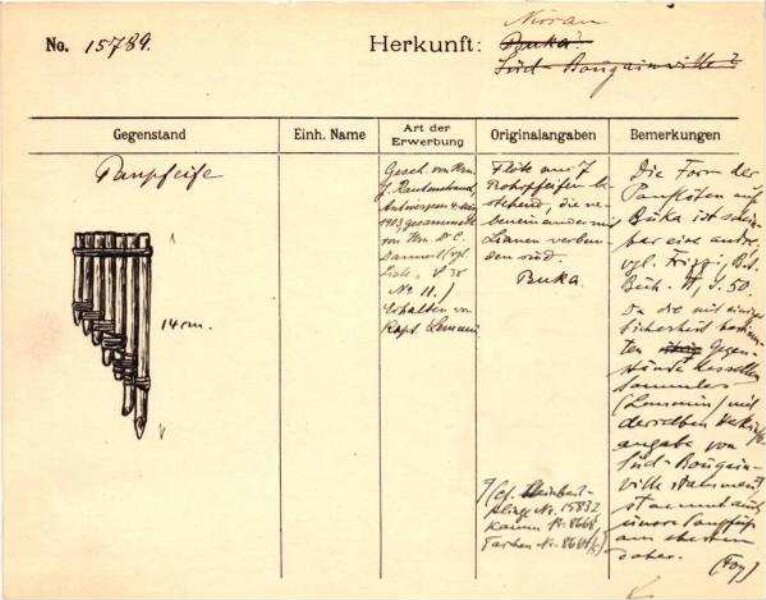 No. 15789.
Herkunft:
Nissan
Buka?
Süd-Bougainville?
Gegenstand
Einh. Name
Art der
Erwerbung
Originalangaben
Bemerkungen
Panpfeife
14 cm.
Gesch. von Hrn.
J. Rautenstrauch,
Antwerpen 4.
1913, gesammelt
von Hrn. Dr. C.
(vgl.
No 11.)
Erhalten von
Kapt.
Flöte aus 7
Rohrpfeifen be-
stehend, die ne-
beneinander mit
Lianen verbun-
den sind.
Buka.
No. 15832
No. 8668
Taschen No.
Die Form der
Panflöten auf
Buka ist schein-
bar eine andre,
vgl. Frizzi,
S. 50.
Da die mit einiger
Sicherheit bestimm-
ten Gegen-
stände desselben
Sammlers
mit
derselben
angabe von
Süd-Bougain-
ville stammen,
stammt auch
unsere Panpfeife
am ehesten
daher.
(Foy)